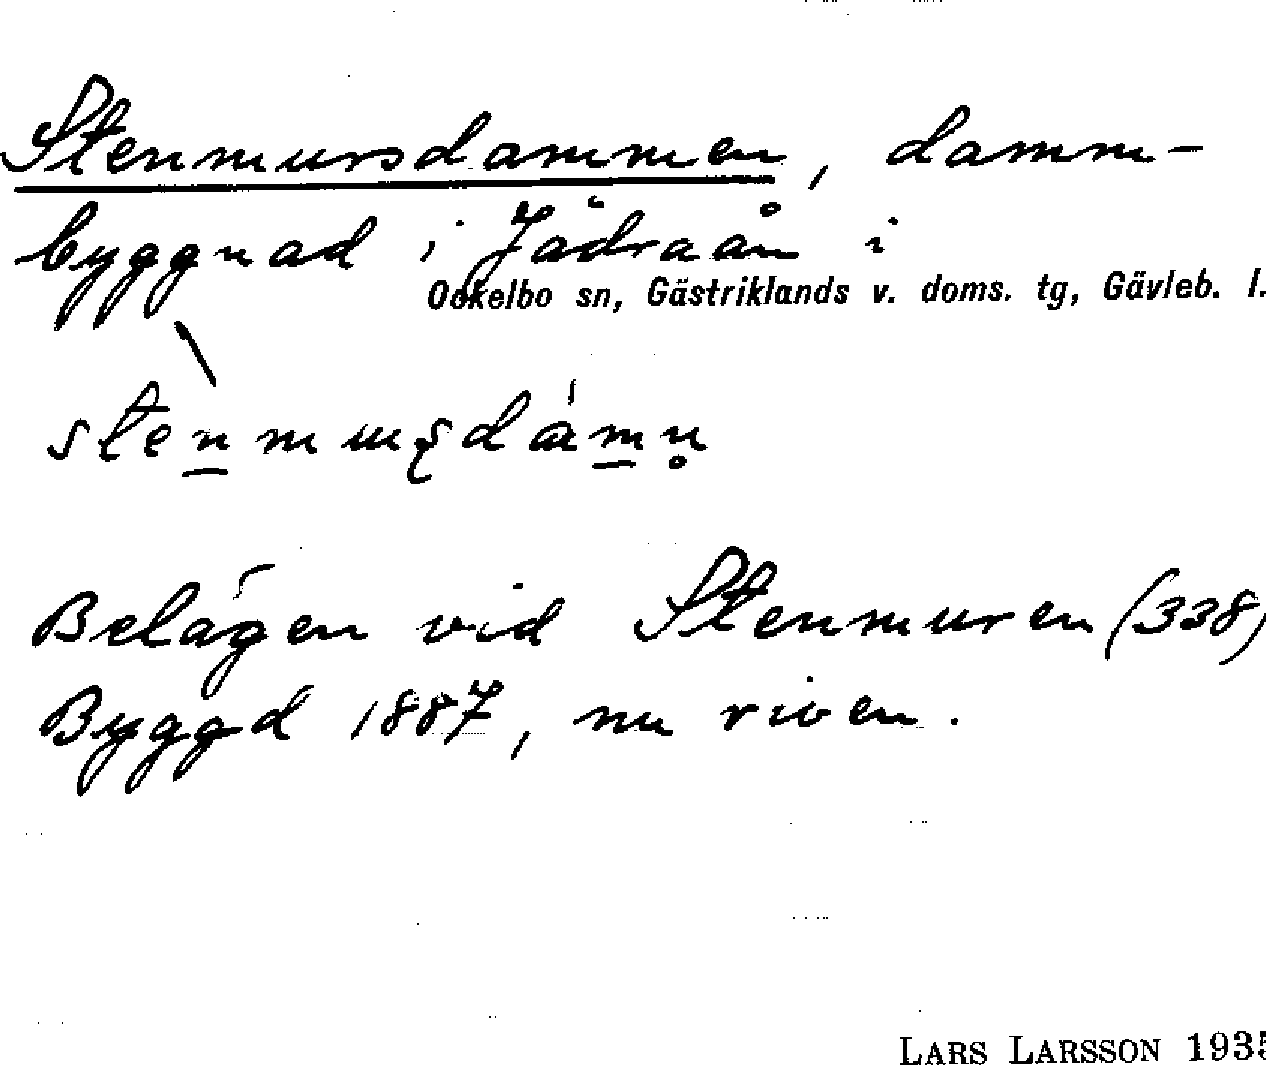 Stenmursdammen, damm-
byggnad i Jädraån i
Ockelbo sn, Gästriklands v. doms. tg, Gävleb. l.
Belägen vid Stenmuren (338)
Byggd 1887, nu riven.
LARS LARSSON 1935